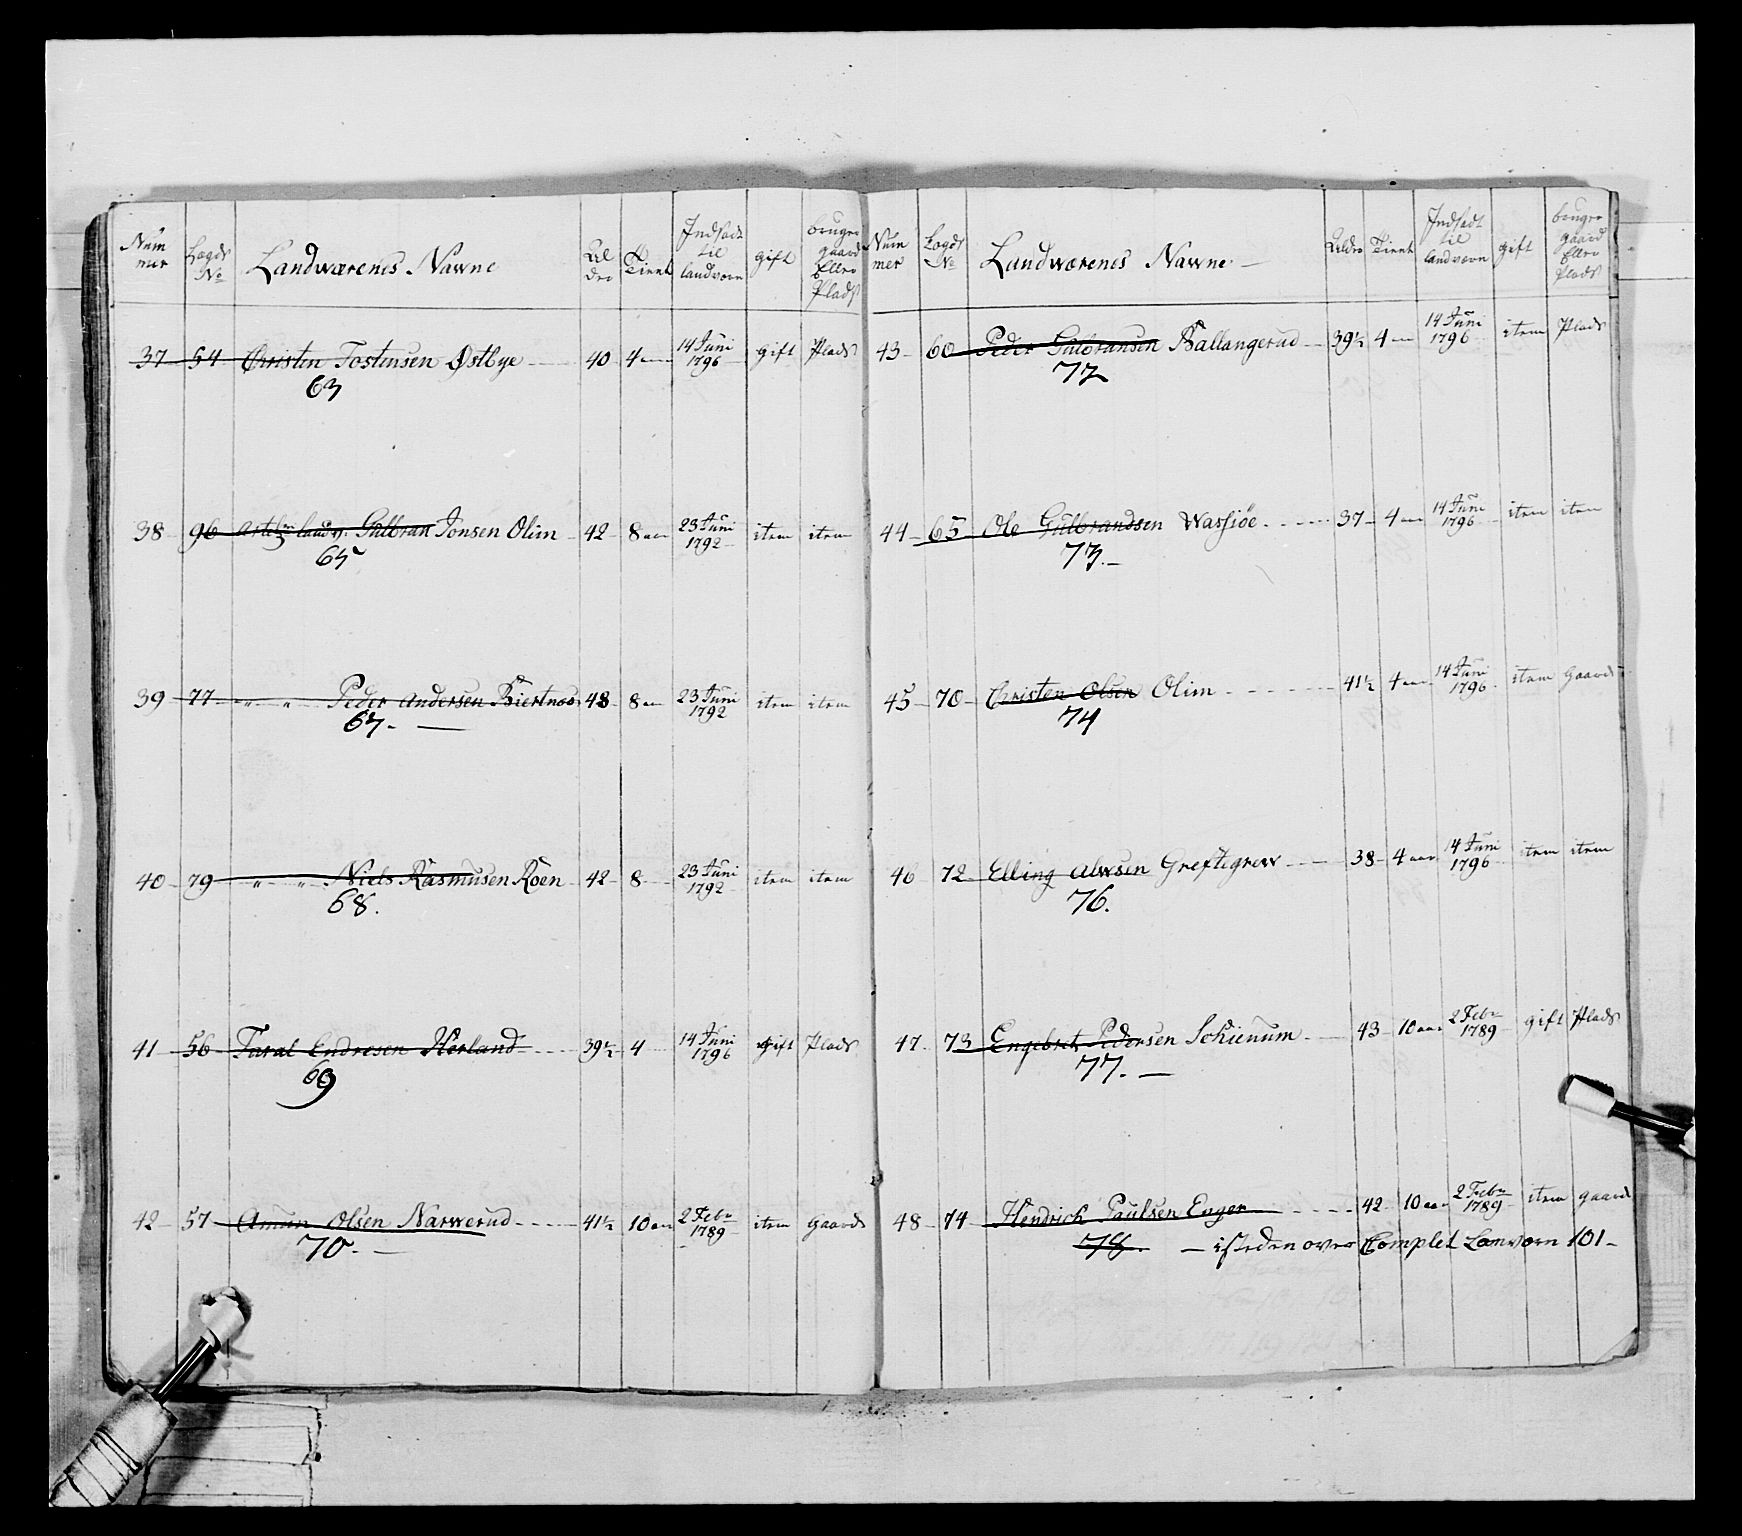 Num
mer
Lægds
No
Landwærenes Nawne
Al
der
Tient
Indsadt
til
landværn
gift
bruger
gaard
Eller
Plads
37 54 Christen Tostensen Østbye 40 4 aar 14 Juni 1796 gift Plads
63
38 96 landv. Gulbran Jonsen Olim 42 8 aar 23 Juni 1792 item item
65
39 77 " " Peder Andersen Biertnæs 43 8 aar 23 Juni 1792 item item
67.
40 79 " " Niels Rasmusen Roen 42 8 23 Juni 1792 item item
68.
41 56 Taral Endresen Herland 39½ 4 14 Juni 1796 gift Plads
69
42 57 Amun Olsen Narwerud 41½ 10 aar 2 Febr 1789 item Gaard
70.
Num
mer
Lægds
No
Landwærenes Nawne
Alder
Tient
Indsadt
til
landværn
gift
bruger
gaard
Eller
Plads
43 60 Peder Gulbransen Ballangerud 39½ 4 aar 14 Juni 1796 item Plads
72
44 65 Ole Gulbrandsen Wassiøe 37 4 aar 14 Juni 1796 item item
73.
45 70 Christen Olsen Olim 41½ 4 aar 14 Juni 1796 item Gaard
74
46 72 Elling Alwsen Greftegrew 38 4 aar 14 Juni 1796 item item
76.
47. 73 Engebret Pedersen Schienum 43 10 aar 2 Febr 1789 gift Plads
77.
48 74 Hendrich Paulsen Enger 42 10 aar 2 Febr 1789 item gaard
78. isteden over Complet Lanværn 101